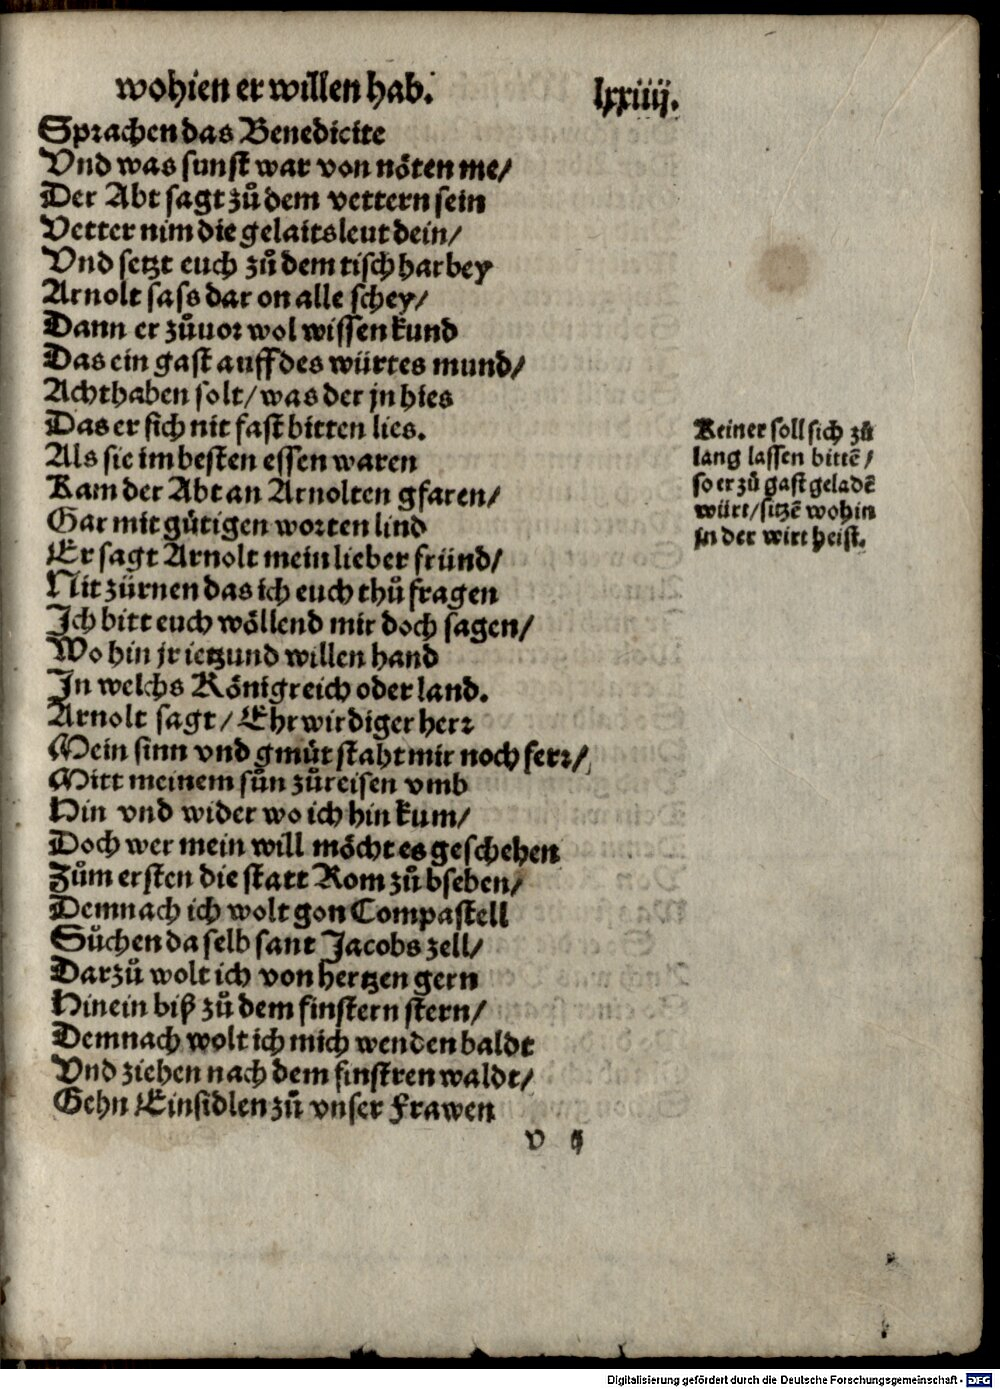 wohien er willen hab. lxxiiij.
Sprachen das Benedicite
Vnd was sunst war von nöten me/
Der Abt sagt zů dem vettern sein
Vetter nim die gelaitsleut dein/
Vnd setzt euch zů dem tisch harbey
Arnolt sass dar on alle schey/
Dann er zůuor wol wissen kund
Das ein gast auff des würtes mund/
Achthaben solt/ was der jn hies
Das er sich nit fast bitten lies.
Als sie im besten essen waren
Kam der Abt an Arnolten gfaren/
Gar mit gütigen worten lind
Er sagt Arnolt mein lieber fründ/
Nit zürnen das ich euch thů fragen
Ich bitt euch wöllend mir doch sagen/
Wo hin jr ietzund willen hand
In welchs Königreich oder land.
Arnolt sagt/ Ehrwirdiger herr
Mein sinn vnd gmüt staht mir noch ferr/
Mitt meinem sůn zůreisen vmb
Hin vnd wider wo ich hin kum/
Doch wer mein will möcht es geschehen
Zům ersten die statt Rom zů bsehen/
Demnach ich wolt gon Compastell
Sůchen da selb sant Jacobs zell/
Darzů wolt ich von hertzen gern
Hinein biß zů dem finstern stern/
Demnach wolt ich mich wenden baldt
Vnd ziehen nach dem finstren waldt/
Gehn Einsidlen zů vnser Frawen
v ij
Keiner soll sich zů
lang lassen bittē/
so er zů gast geladē
würt/sitzē wohin
jn der wirt heist.
Digitalisierung gefördert durch die Deutsche Forschungsgemeinschaft - DFG